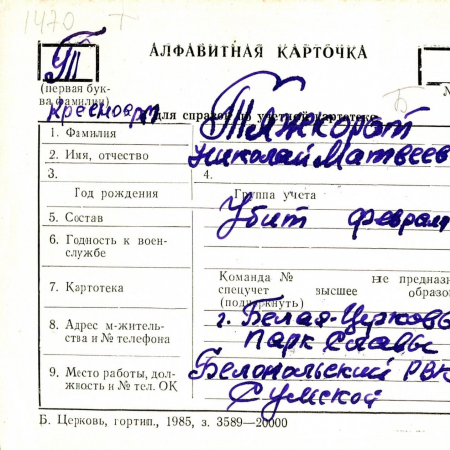 1470 Т
АЛФАВИТНАЯ КАРТОЧКА
Т
(первая бук-
ва фамилии)
Б
Красноарм
для справок по учетной картотеке
1. Фамилия Тяжкороб
2. Имя, отчество Николай Матвеев
3. 4.
Год рождения Группа учета
5. Состав Убит феврал
6. Годность к воен-
службе
Команда № не предназн
7. Картотека спецучет высшее образо
(подчеркнуть)
8. Адрес м-житель-
ства и № телефона
г. Белая-Церковь
Парк Славы
9. Место работы, дол-
жность и № тел. ОК
Белопольский РВК
Сумской
Б. Церковь, гортип., 1985, з. 3589—20000